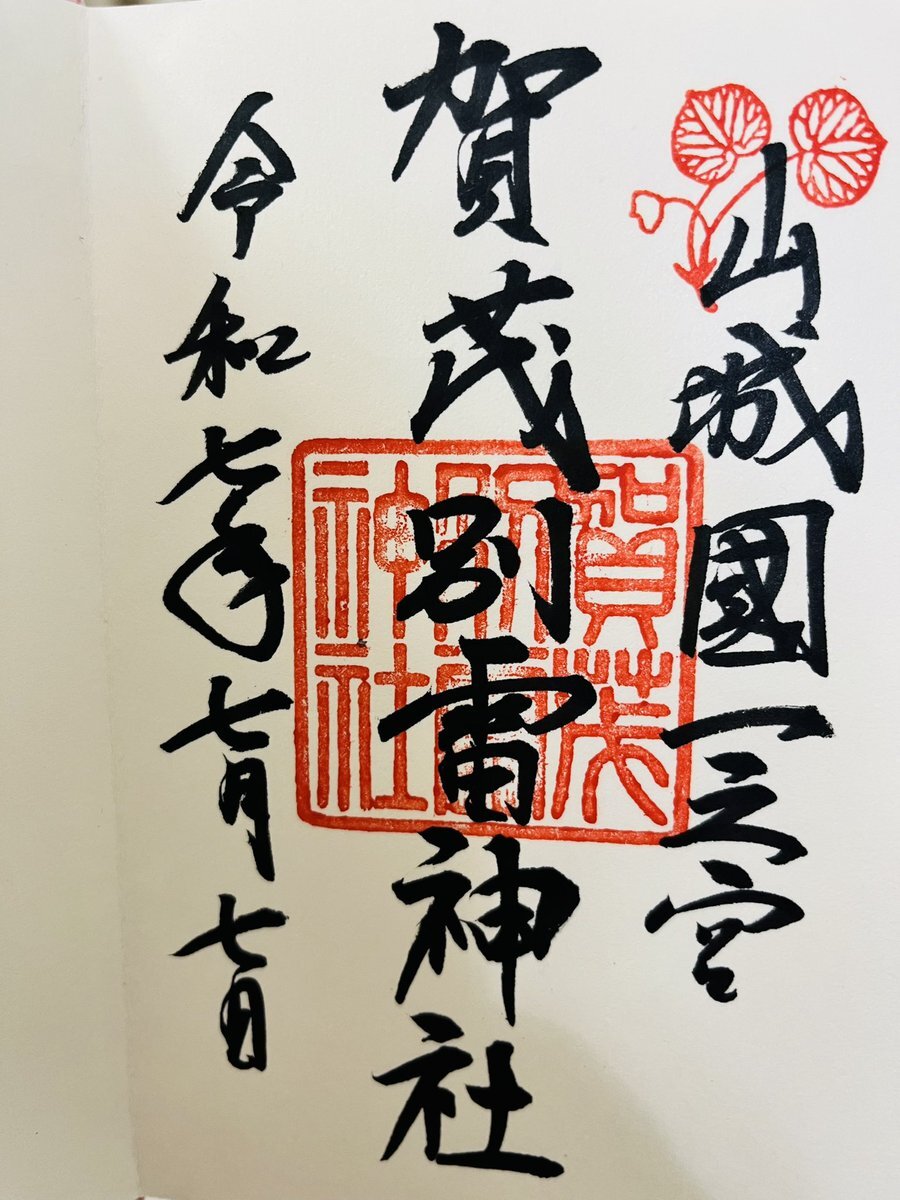 山城國一之宮
賀茂別雷神社
令和七年七月七日
賀茂
別雷
神社